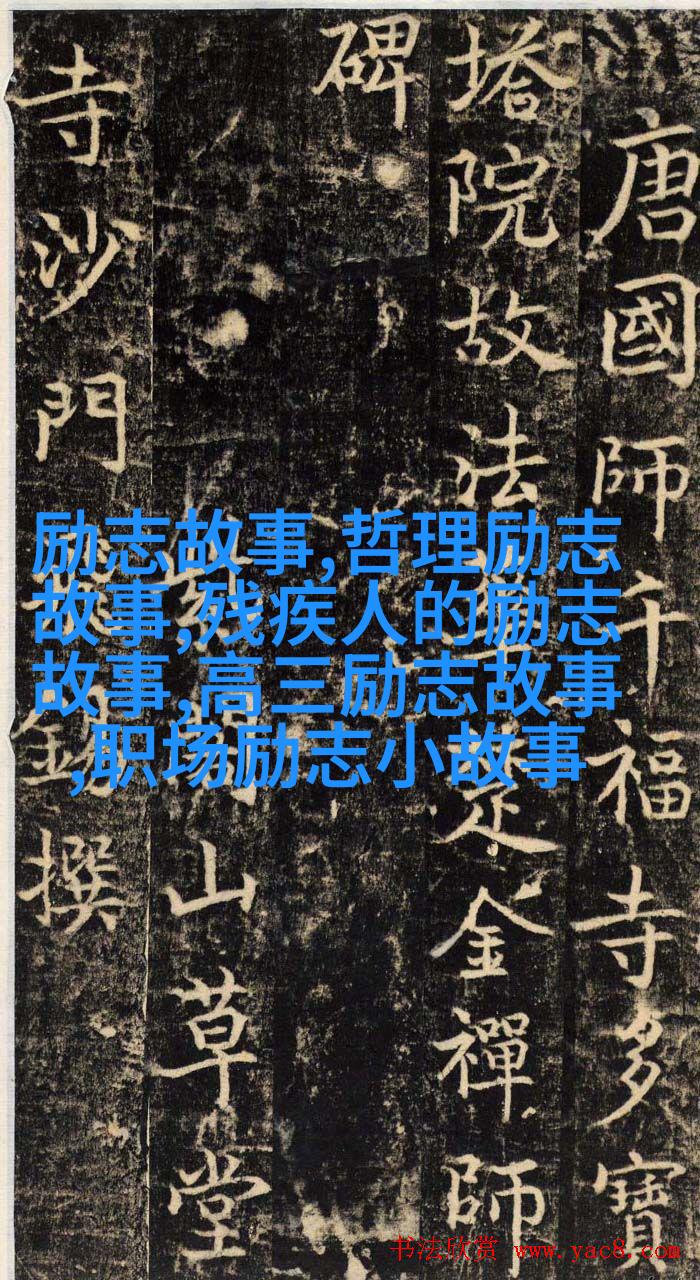 唐國師千福寺多寶
塔院故法金禪師
碑
山草堂
寺沙門錫撰
励志故事,哲理励志
故事,残疾人的励志
故事,高三励志故事
,职场励志小故事
书法欣赏 www.yac8.com